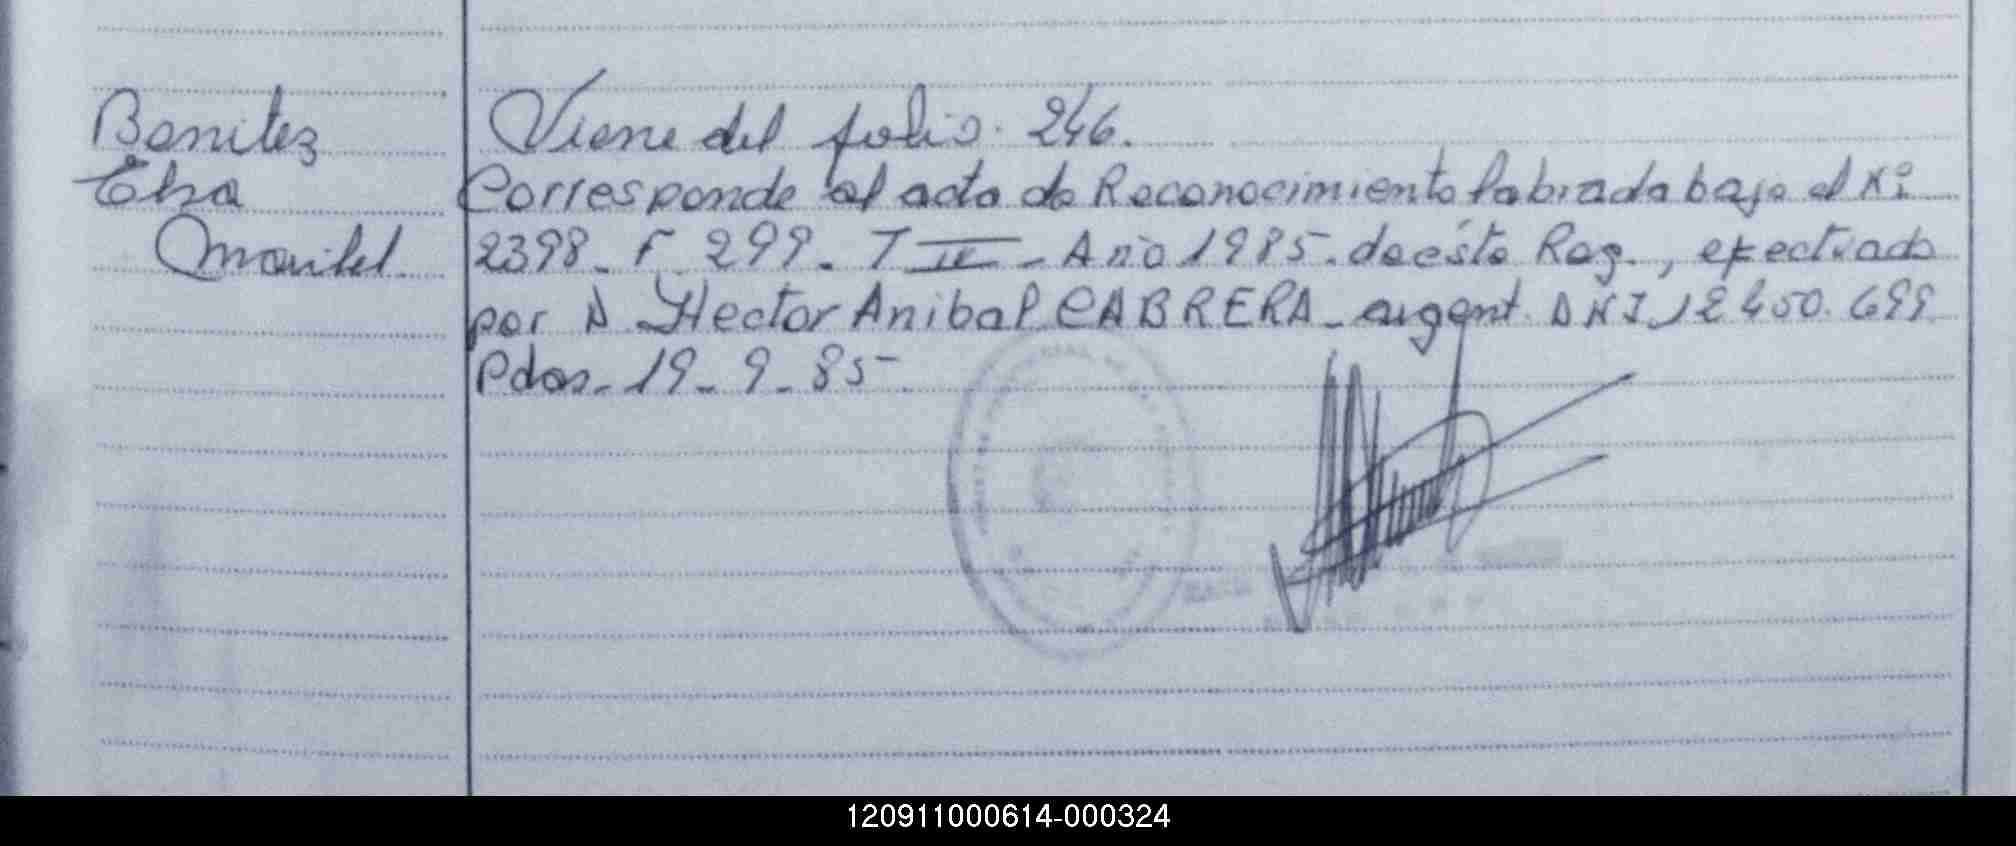 Benitez
Elsa
Maribel
Viene del folio. 246.
Corresponde al acta de Reconocimiento labrada bajo el Nº
2398 - F 299 - T II - Año 1985 - de ésta Reg., efectuado
por D. Hector Anibal CABRERA - argent. DNI 12.450.699
Pdas - 19 - 9 - 85 -
120911000614-000324